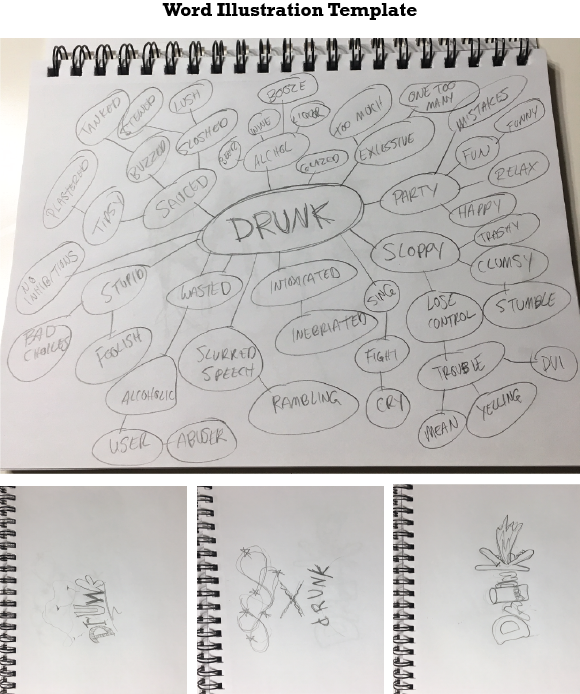 Word Illustration Template
TANKED
LUSH
BOOZE
ONE TOO
MANY
MISTAKES
WINE
LIQUOR
TOO MUCH
FUNNY
SLOSHED
BUZZED
ALCHOL
EXLESSIVE
FUN
GLAZED
RELAX
TIPSY
SAUCED
PARTY
HAPPY
DRUNK
TRASHY
SLOPPY
CLUMSY
NO
INHIBITIONS
STUPID
WASTED
INTOXICATED
SING
LOSE
CONTROL
STUMBLE
BAD
CHOICES
FOOLISH
SLURRED
SPEECH
INEBRIATED
FIGHT
TROUBLE
DUI
ALCOHOLIC
RAMBLING
CRY
YELLING
MEAN
USER
ABUSER
DRUNK
DRUNK